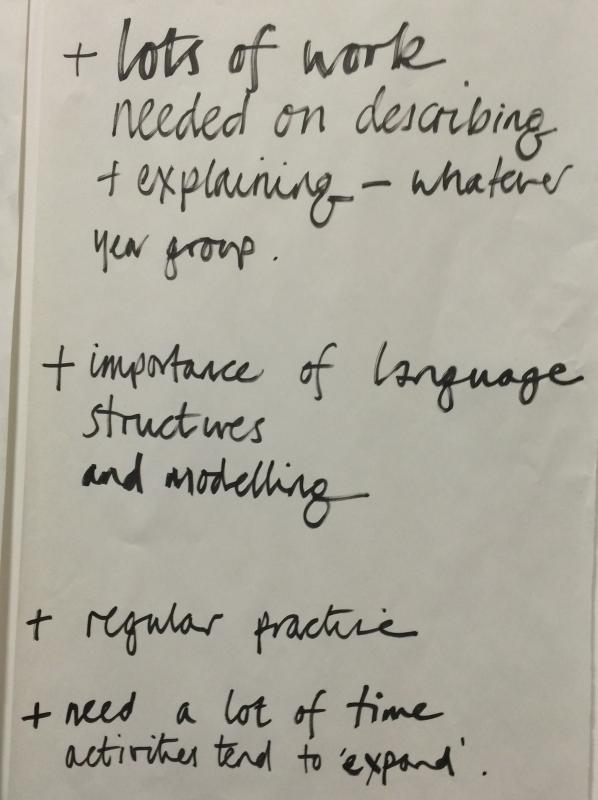 + lots of work
needed on describing
+ explaining – whatever
year group.
+ importance of language
structures
and modelling
+ regular practice
+ need a lot of time
activities tend to 'expand'.